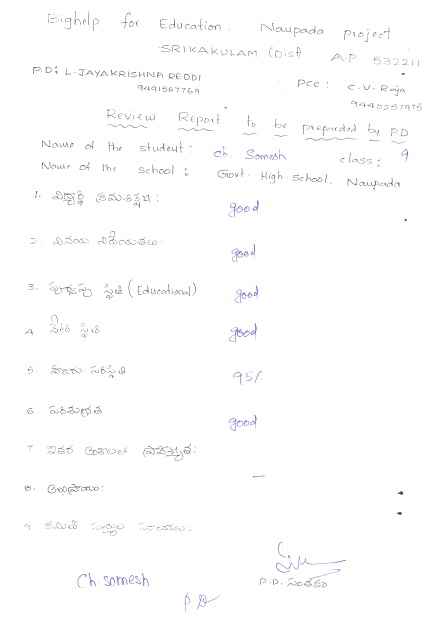 Bighelp for Education. Naupada project
SRIKAKULAM (Dist) A.P. 532211
P.D: L. JAYAKRISHNA REDDI
9491567769
PCC: C.V. Raja
9440257975
Review Report to be preparded by P.D
Name of the student: ch. Somesh class: 9
Name of the school: Govt. High. School, Naupada
1. విద్యార్థి క్రమశిక్షణ: good
2. వినయ విధేయతలు. good
3. పూర్వపు స్థితి (Educational) good
4 నేటి స్థితి good
5. హాజరు పరిస్థితి 95%
6. పరిశుభ్రత good
7 ఇతర అంశాలలో ప్రావీణ్యత:
8. అభిప్రాయం: —
9 కమిటీ సభ్యుల సూచనలు:
Ch. somesh
P.D. సంతకం
P D